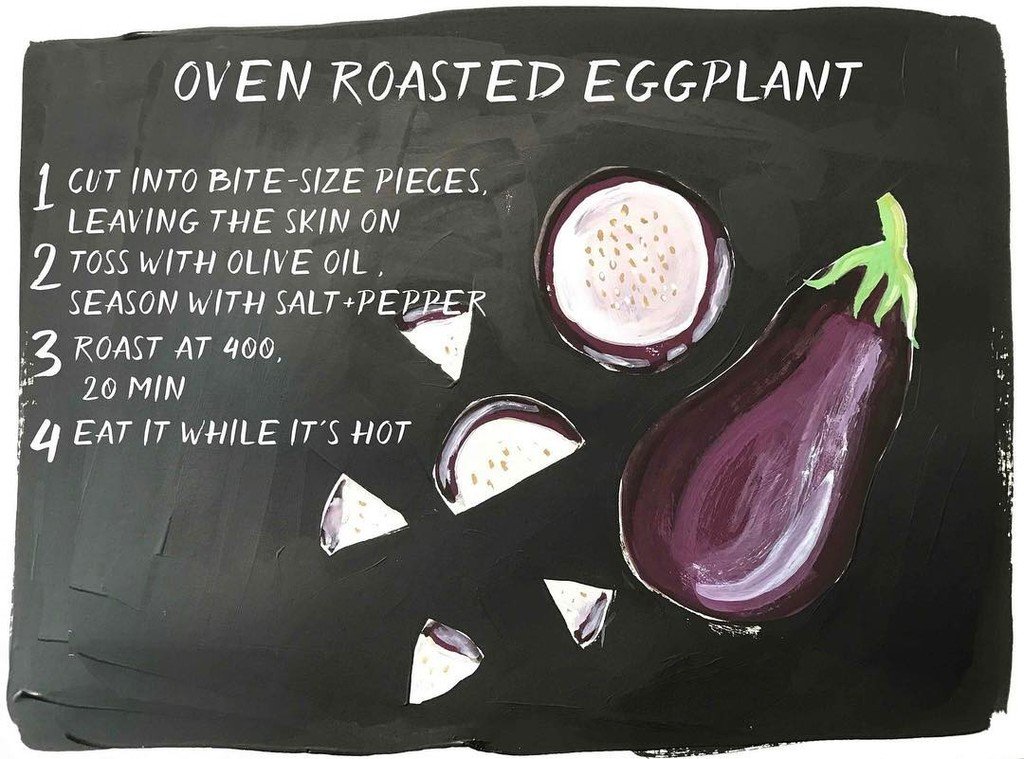 OVEN ROASTED EGGPLANT
1 CUT INTO BITE-SIZE PIECES,
LEAVING THE SKIN ON
2 TOSS WITH OLIVE OIL,
SEASON WITH SALT+PEPPER
3 ROAST AT 400,
20 MIN
4 EAT IT WHILE IT'S HOT